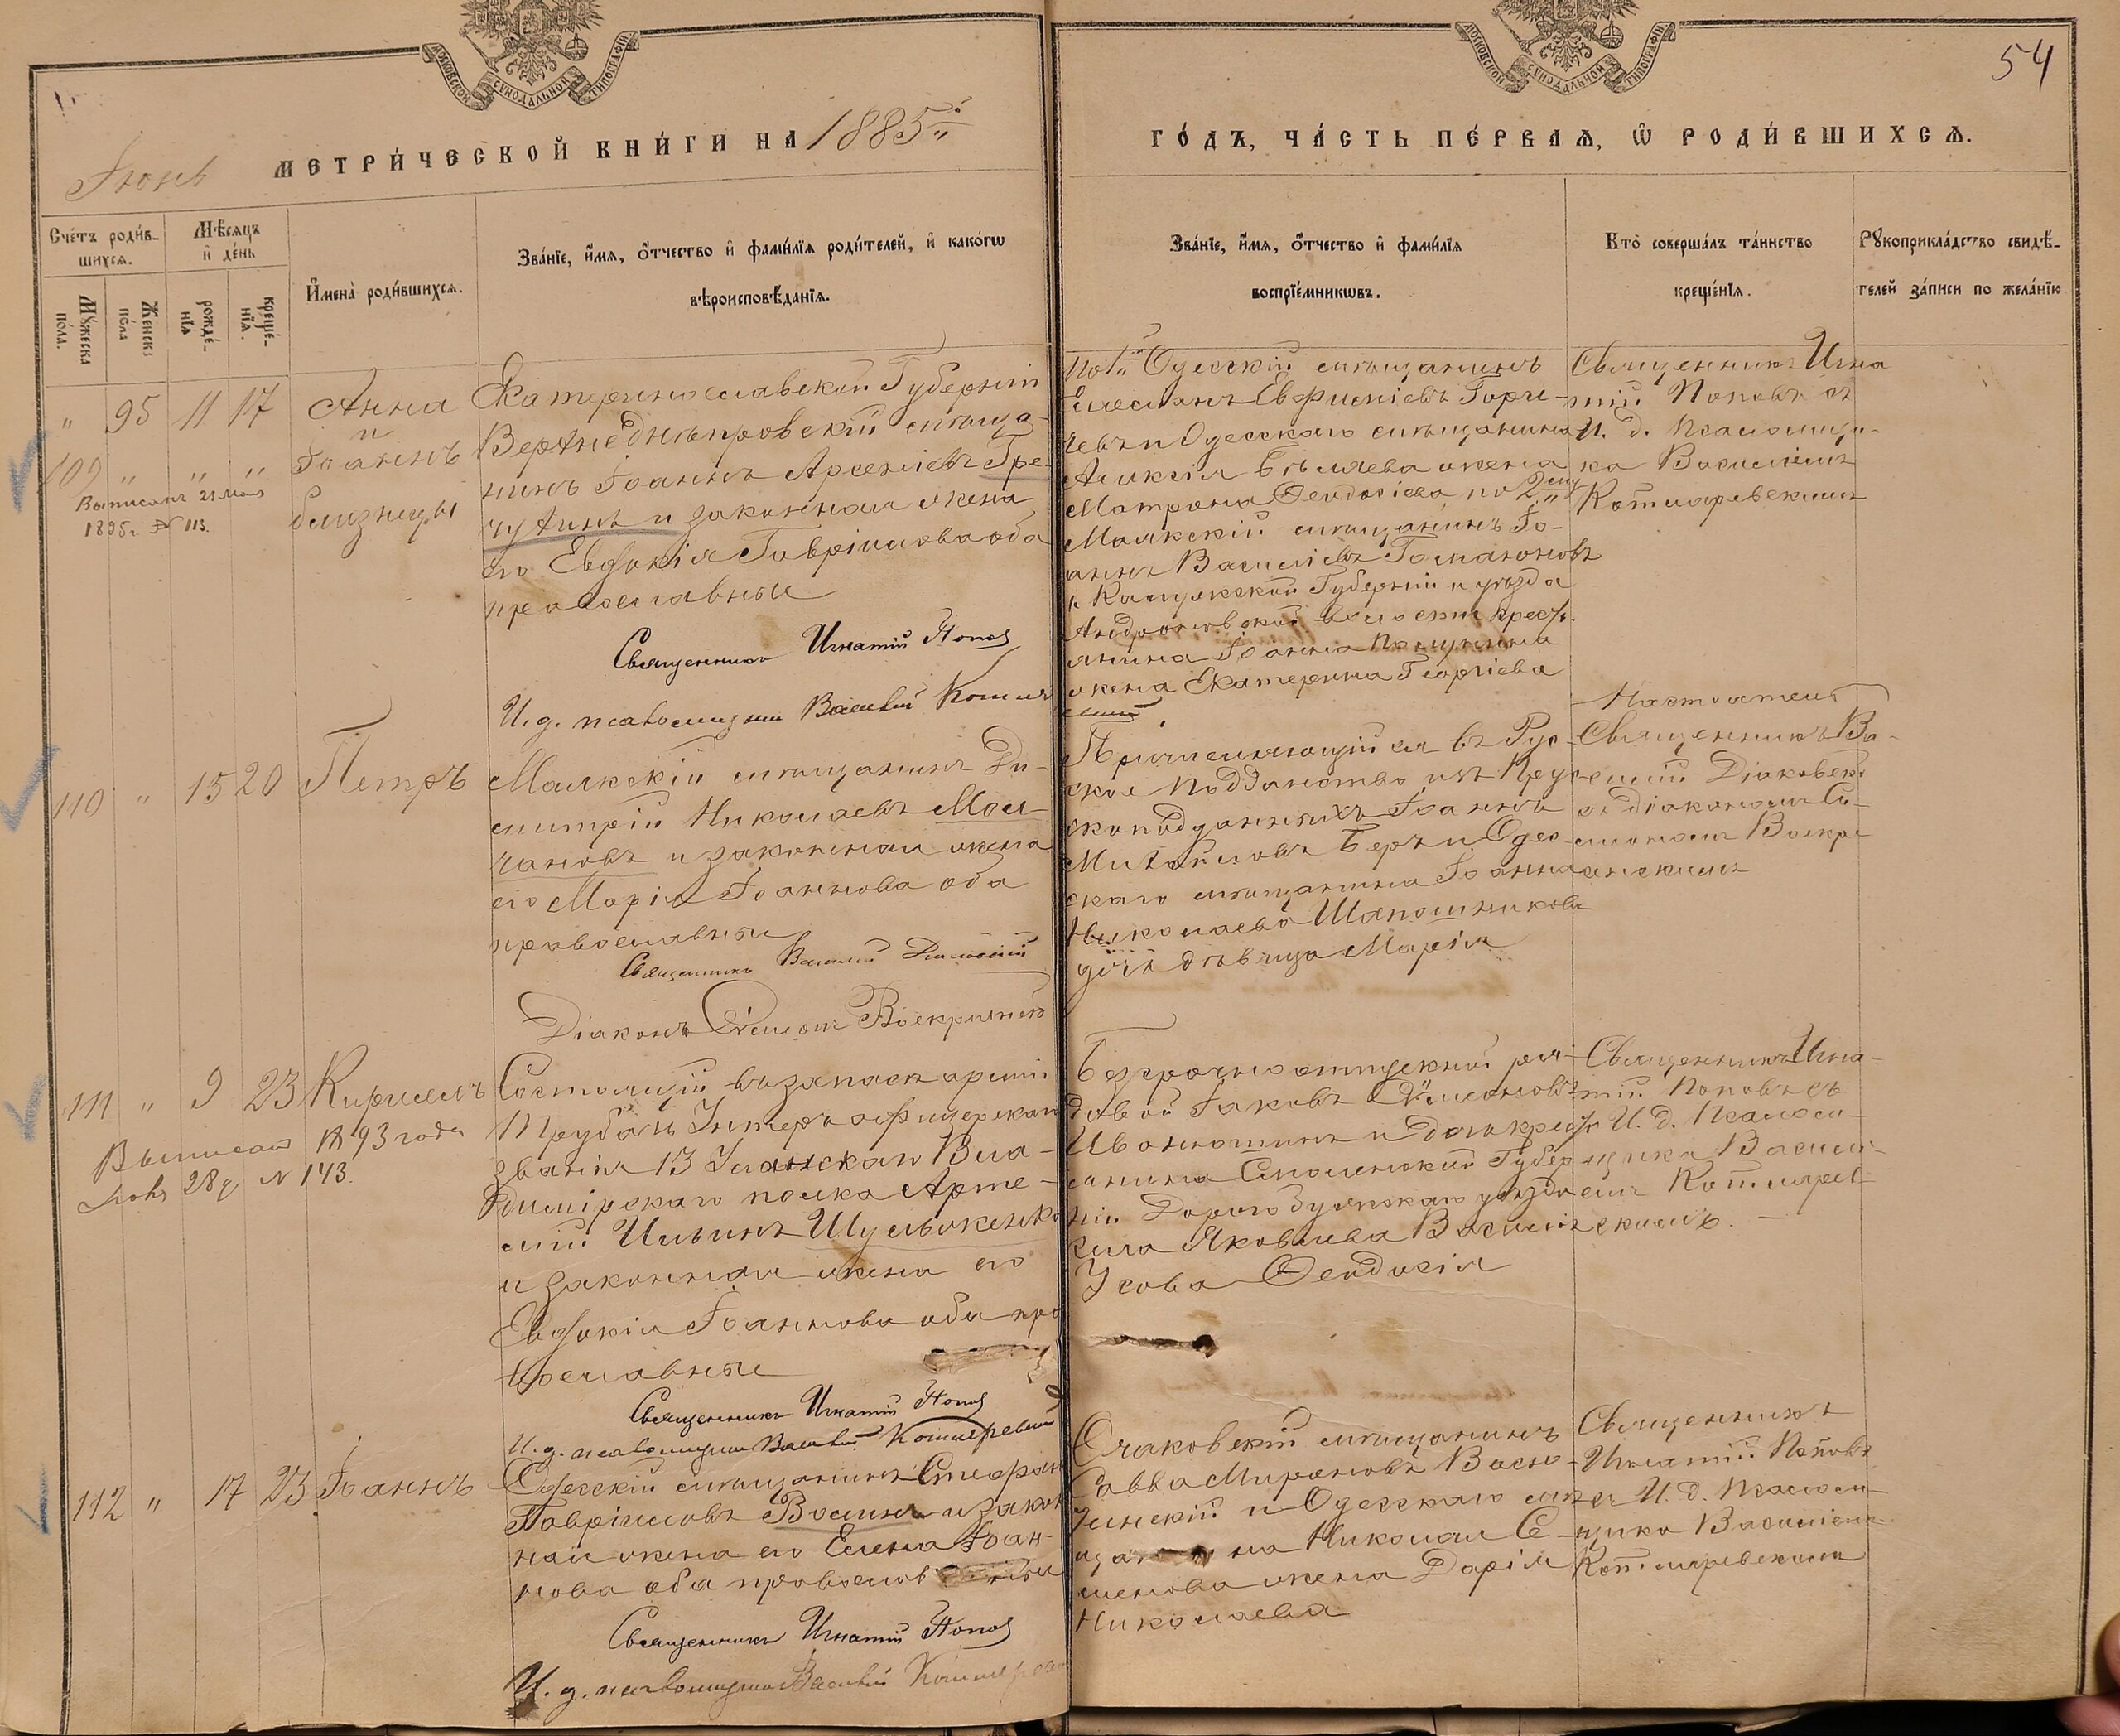 МОСКОВСКОЙ СѴНОДАЛЬНОЙ ТИПОГРАФІИ
МОСКОВСКОЙ СѴНОДАЛЬНОЙ ТИПОГРАФІИ
54
Іюнь
МЕТРИ́ЧЕСКОЙ КНИ́ГИ НА 1885й
ГО́ДЪ, ЧА́СТЬ ПЕ́РВАЯ, Ѡ҃ РОДИ́ВШИХСЯ.
Сче́тъ роди́вшихся.
Мѣ́сяцъ и҆ де́нь
Мꙋ́жеска по́ла.
Же́нска по́ла
рожде́нїя
креще́нїя.
И҆мена̀ роди́вшихся.
Зва́нїе, и҆́мя, ѻ҆́тчество и҆ фами́лїя роди́телей, и҆ како́гѡ
вѣроисповѣ́данїя.
Зва́нїе, и҆́мя, ѻ҆́тчество и҆ фами́лїя
воспрїе́мникѡвъ.
Кто̀ соверша́лъ та́инство
креще́нїя.
Рꙋкоприкла́дство свидѣ́телей за́писи по жела́нїю
" 95 11 17 Анна
и
109 " " " Іоаннъ
близнецы
Выписанъ 21 мая
1895 г. № 113.
Екатеринославской Губерніи
Верхнеднѣпровскій мѣща-
нинъ Іоаннъ Арсеніевъ Гре-
чухинъ и законная жена
его Евдокія Гавріилова оба
православные
Священникъ Игнатій Попов
И. д. псаломщика Василій Котляр
евский
по 1й Одесскій мѣщанинъ
Гори-
чевъ и Одесскаго мѣщанина
Алексія Бѣляева жена
Матрона Феодосіева по 2му
Маякскій мѣщанинъ Іо-
аннъ Василіевъ
и Калужской Губерніи и уѣзда
волости крестьянина Іоанна
жена Екатерина Георгіева
Священникъ Игна
тій Поповъ съ
И. д. Псаломщи-
ка Василіемъ
Котляревскимъ
110 " 15 20 Петръ
Маякскій мѣщанинъ Ди-
митрій Николаевъ Мол-
чановъ и законная жена
его Марія Іоаннова оба
православные
Священникъ Василій Діаковскій
Діаконъ Симеонъ Воскресенскій
Причисляющійся въ Рус-
ское подданство изъ Прус-
скоподданныхъ Іоаннъ
Михайловъ Беръ и Одес-
скаго мѣщанина Іоанна
Николаева Шапошникова
дочь дѣвица Марія
Настоятель
Священникъ Ва-
силій Діаковскій
съ діакономъ Си-
меономъ Воскре-
сенскимъ
111 " 9 23 Кириллъ
Выписан 1893 года
28 № 143.
Состоящій въ запасѣ арміи
Трубачъ Унтеръ офицерскаго
званія 13 Уланскаго Вла-
димірскаго полка Арте-
мій Ильинъ Шульженко
и законная жена его
Евдокія Іоаннова оба пра
вославные
Священникъ Игнатій Попов
И. д. псаломщика Василій Котляревский
Безсрочноотпускной ря-
довой Іаковъ Симеоновъ
Иванюшинъ и дочь крестьянина Смоленской Губер-
ніи Дорогобужскаго уѣзда
села Яковлева Василія
Усова Феодосія
Священникъ Игна-
тій Поповъ съ
И. д. Псалом-
щика Василі-
емъ Котлярев-
скимъ.
112 " 17 23 Іоаннъ
Одесскій мѣщанинъ Стефан
Гавріиловъ Восинъ и закон
ная жена его Елена Іоан-
нова оба православные
Священникъ Игнатій Попов
И. д. псаломщика Василій Котлярев
Очаковскій мѣщанинъ
Савва Мироновъ
и Одесскаго мѣ-
щанина Николая Се-
менова жена Дарія
Николаева
Священникъ
Игнатій Поповъ
съ И. д. Псалом-
щика Василіемъ
Котляревскимъ